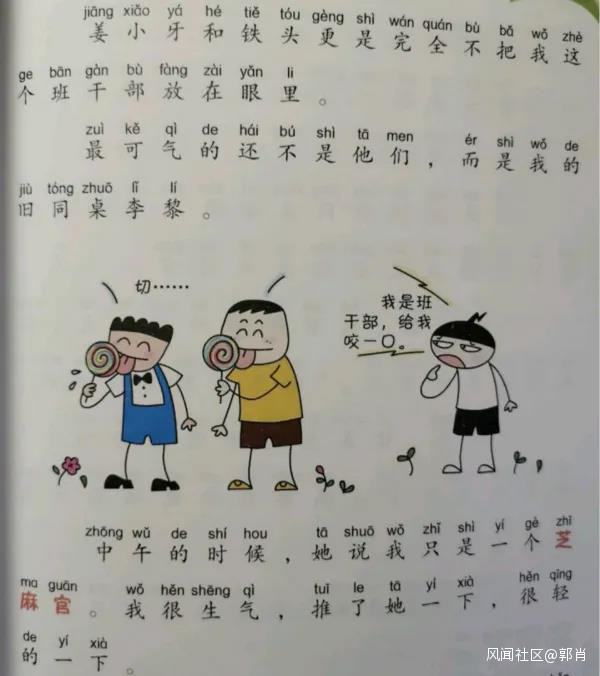 jiāng xiǎo yá hé tiě tóu gèng shì wán quán bù bǎ wǒ zhè
姜小牙和铁头更是完全不把我这
ge bān gàn bù fàng zài yǎn li
个班干部放在眼里。
zuì kě qì de hái bú shì tā men , ér shì wǒ de
最可气的还不是他们，而是我的
jiù tóng zhuō lǐ lí
旧同桌李黎。
切……
我是班
干部，给我
咬一口。
zhōng wǔ de shí hou , tā shuō wǒ zhǐ shì yí gè zhī
中午的时候，她说我只是一个芝
ma guān wǒ hěn shēng qì tuī le tā yí xià hěn qīng
麻官。我很生气，推了她一下，很轻
de yí xià
的一下。
风闻社区@郭肖